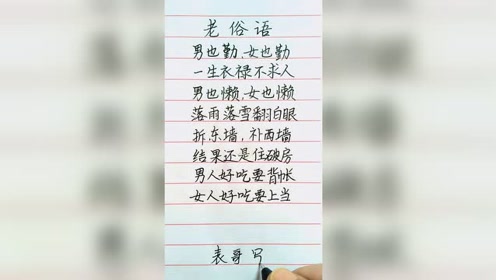 老俗语
男也勤,女也勤
一生衣禄不求人
男也懒,女也懒
落雨落雪翻白眼
拆东墙,补西墙
结果还是住破房
男人好吃要背帐
女人好吃要上当
表哥写